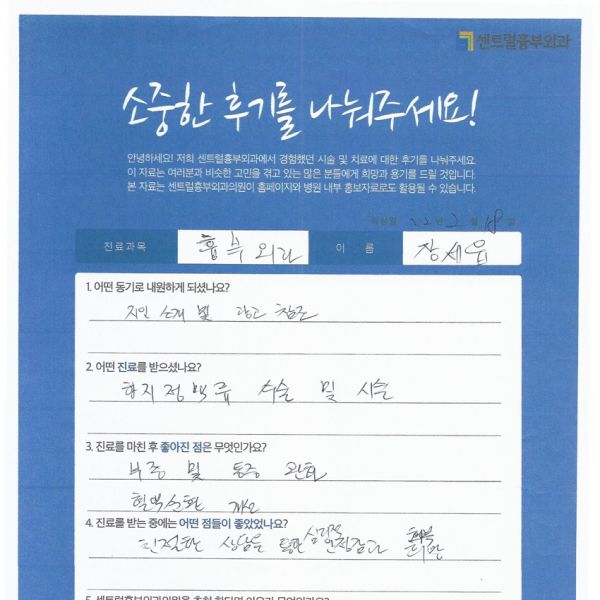 센트럴흉부외과
소중한 후기를 나눠주세요!
안녕하세요! 저희 센트럴흉부외과에서 경험했던 시술 및 치료에 대한 후기를 나눠주세요
이 자료는 여러분과 비슷한 고민을 겪고 있는 많은 분들에게 희망과 용기를 드릴 것입니다.
본 자료는 센트럴흉부외과의원이 홈페이지와 병원 내부 홍보자료로도 활용될 수 있습니다.
작성일 22년 2월 18일
진료과목 흉부외과 이 름 장세읍
1. 어떤 동기로 내원하게 되셨나요?
지인 소개 및 광고 참조
2. 어떤 진료를 받으셨나요?
하지정맥류 수술 및 시술
3. 진료를 마친 후 좋아진 점은 무엇인가요?
부종 및 통증 완화
혈액순환 개선
4. 진료를 받는 중에는 어떤 점들이 좋았었나요?
친절한 상담을 통한 심리적 안정감과 회복 희망